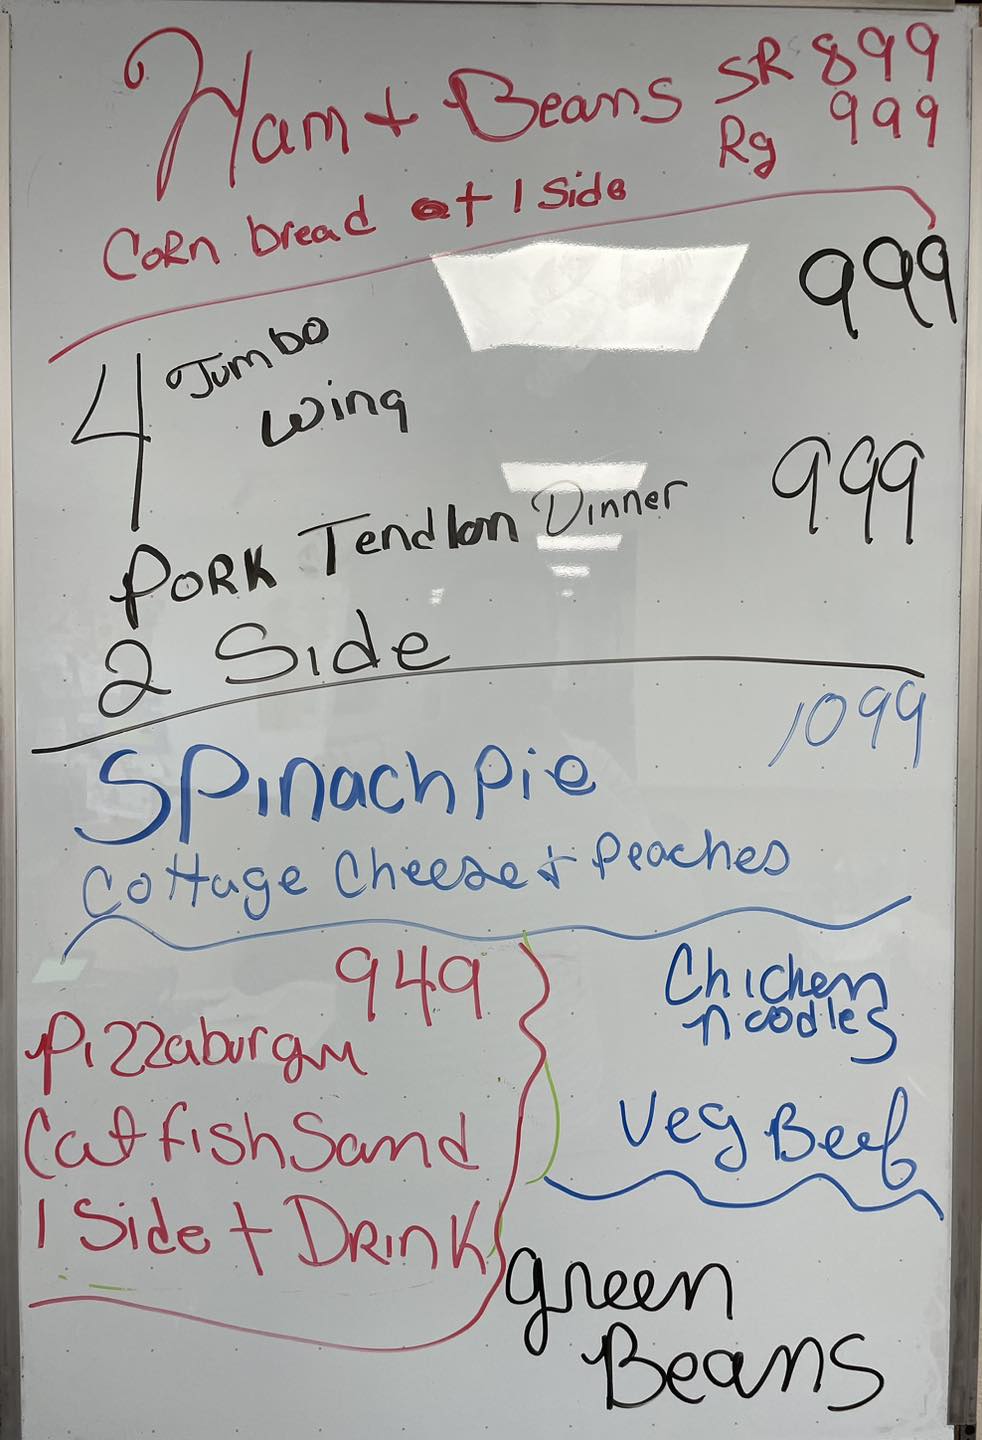 Ham + Beans SR 899
Rg 999
Corn bread + 1 Side
999
4 Jumbo
Wing
999
Pork Tendlon Dinner
2 Side
1099
Spinach pie
Cottage Cheese + Peaches
949
Pizzaburger
Catfish Sand
1 Side + Drink
Chicken
noodles
Veg Beef
green
Beans